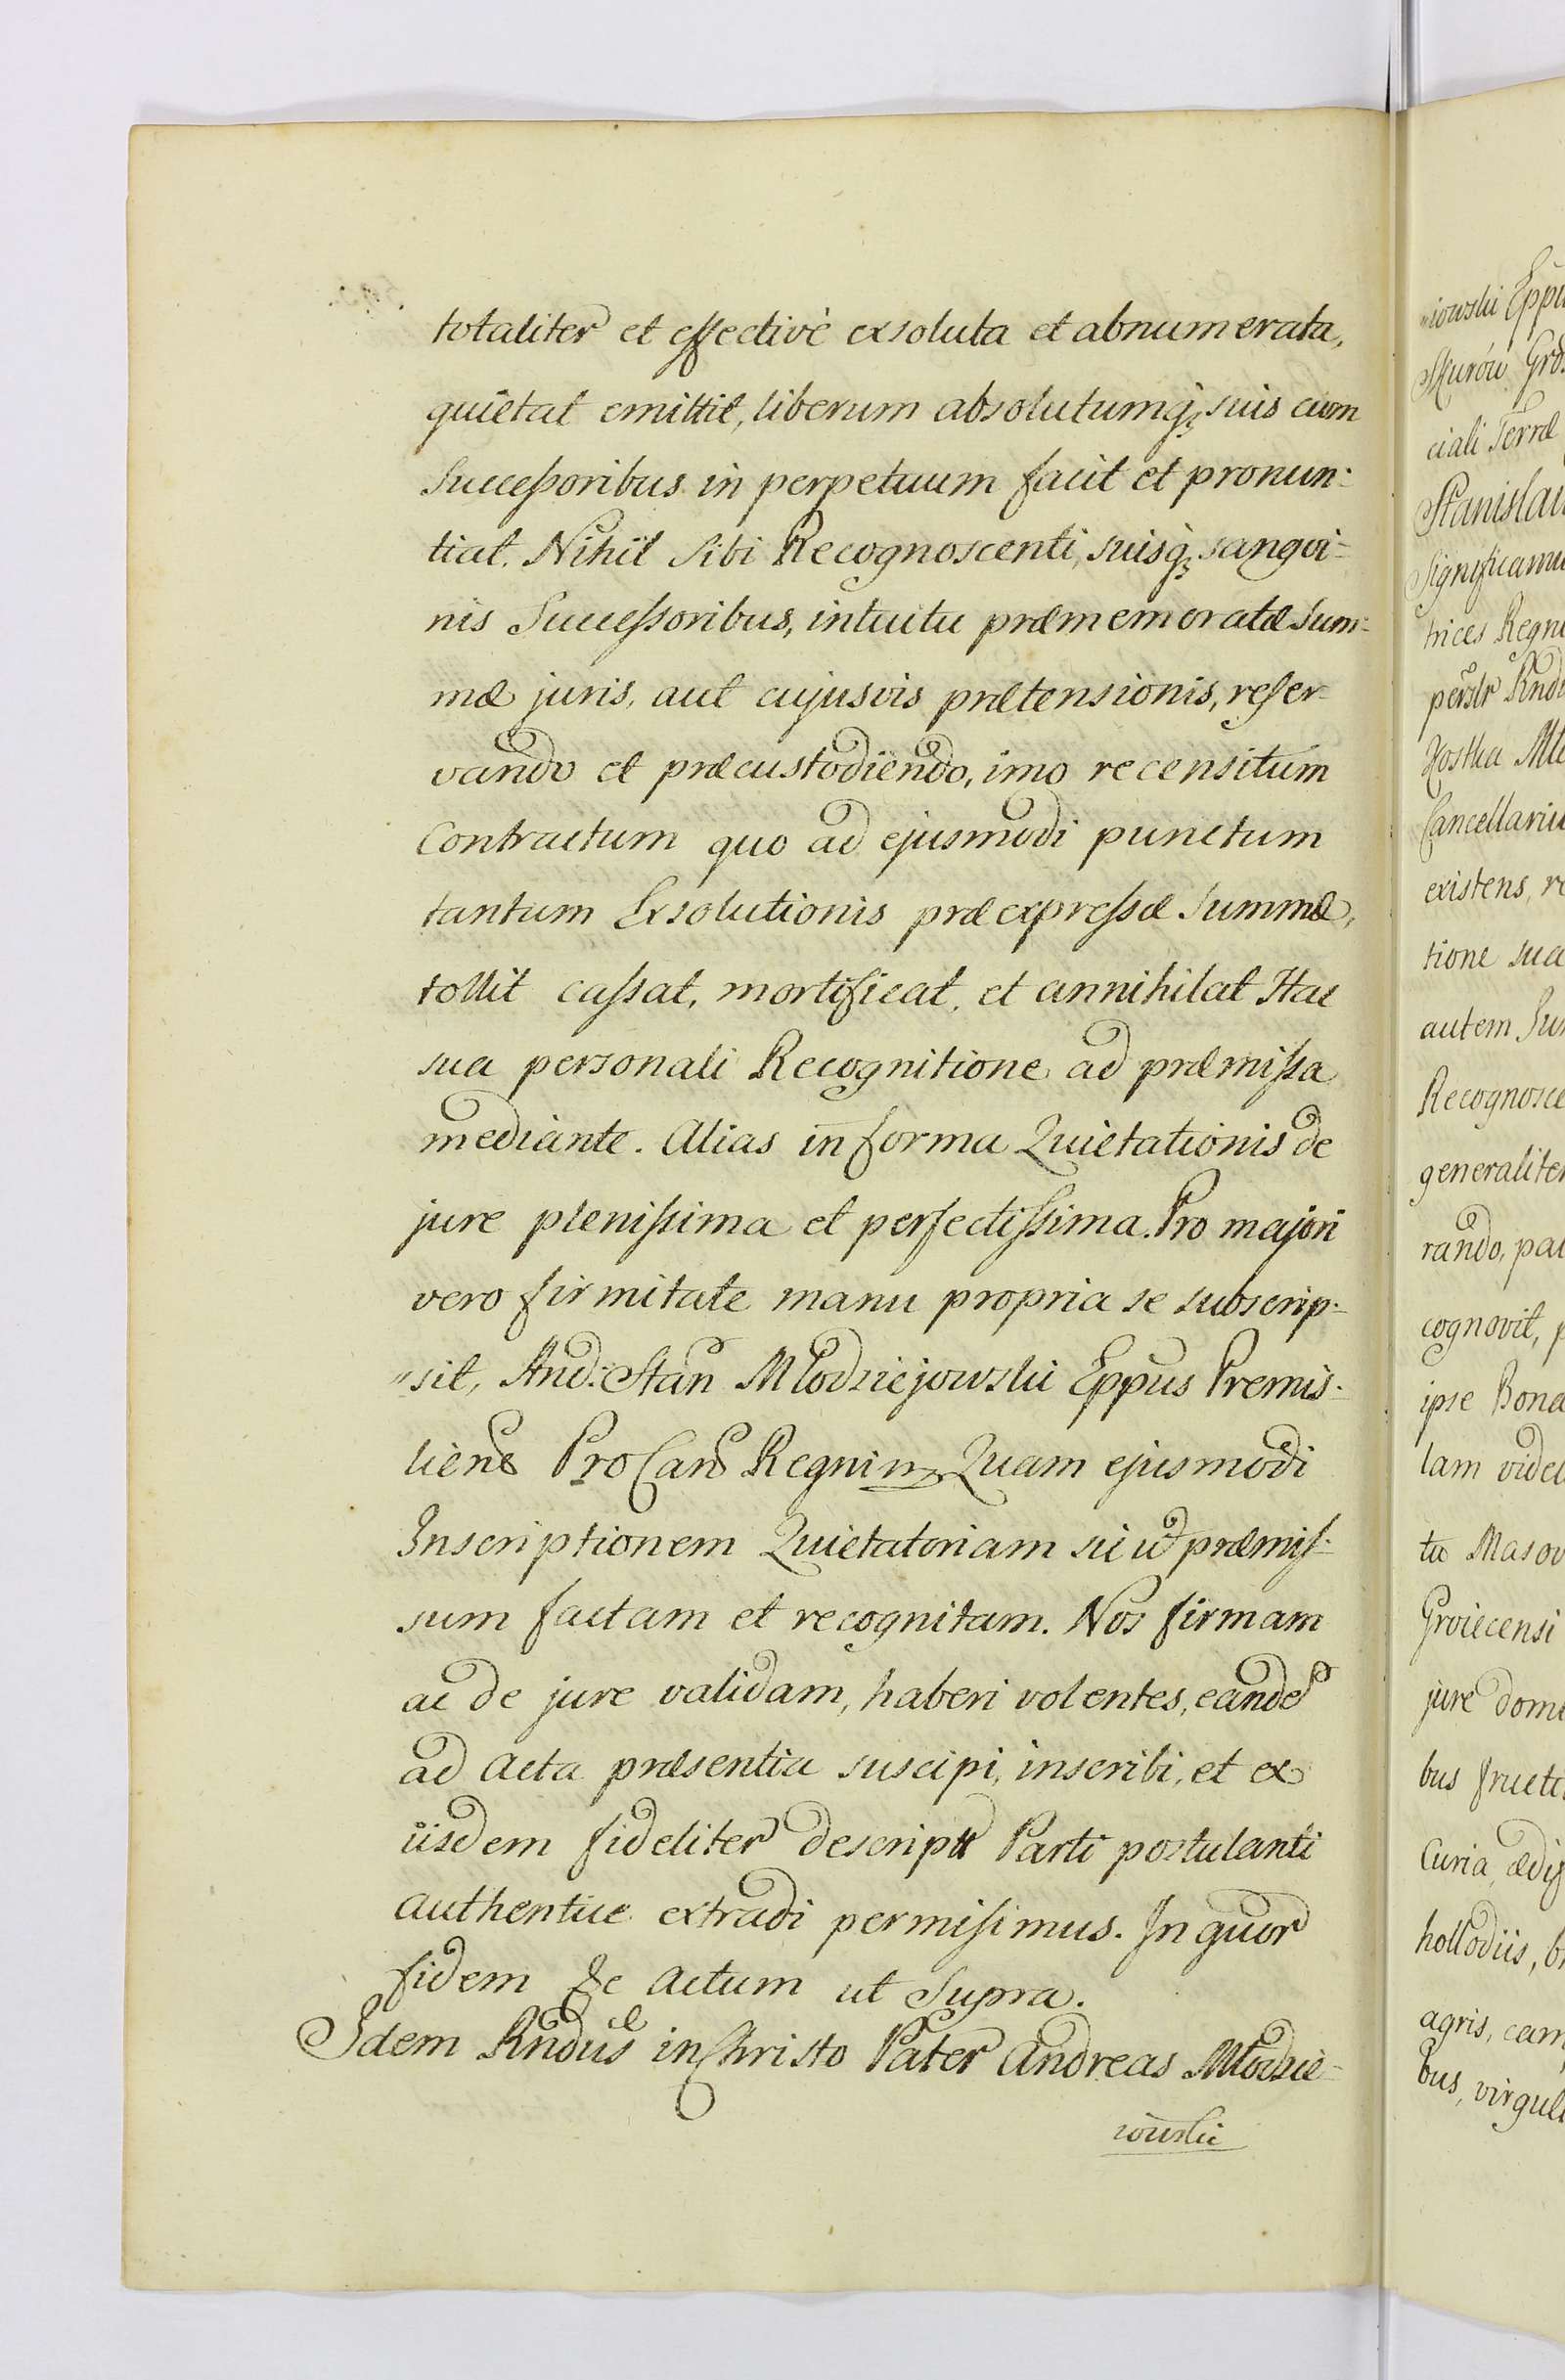 totaliter et effectivè exsoluta et abnumerata,
quietat emittit, liberum absolutumq, suis cum
Successoribus in perpetuum facit et pronun:
tiat. Nihil sibi Recognoscenti, suisq, sangvi-
nis Successoribus, intuitu præmemoratæ Sum:
mæ juris, aut cujusvis prætensionis, reser-
vando et præcustodiendo, imo recensitum
Contractum quo ad ejusmodi punctum
tantum Exsolutionis præexpressæ Summæ,
tollit cassat, mortificat, et annihilat Hac
sua personali Recognitione ad præmissa
mediante. Alias in forma Quietationis de
jure plenissima et perfectissima. Pro majori
vero firmitate manu propria se subscrip:
sit, And: Stan Młodziejowski Eppus Premis:
liens ProCan Regni mp Quam ejusmodi
Inscriptionem Quietatoriam sic ut præmis:
sum factam et recognitam. Nos firmam
ac de jure validam, haberi volentes, eande
ad Acta præsentia suscipi, inscribi, et ex
iisdem fideliter descript Parti postulanti
authentice extradi permisimus. In quor
fidem &c Actum ut Supra.
Idem Rndus in Christo Pater Andreas Młodzie-
iowski
iowski Eppu
Gro
ciali Terræ
Stanislau
Significamu
trices Regni
Cancellariu
existens, re
tione sua
autem Su
Recognosce
generaliter
rando, pa
cognovit, p
ipse Bona
lam vide
tu Masov
Groiecensi
jure dom
bus fruct
Curia, ædif
agris, cam
bus, virgul